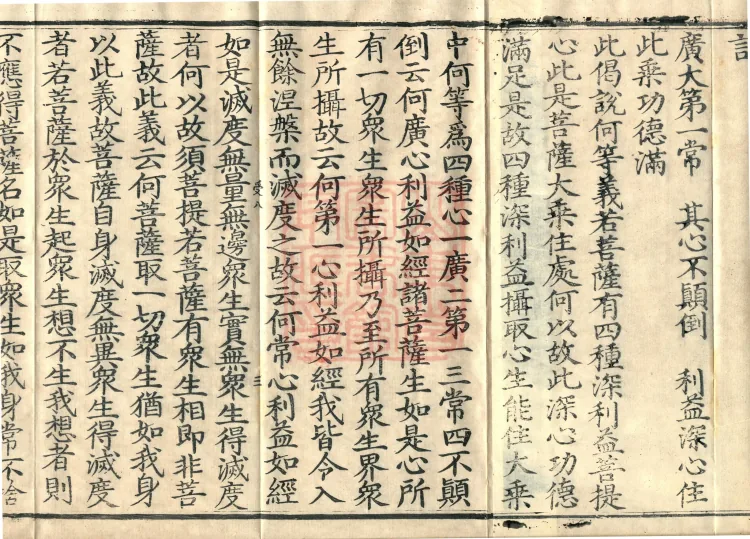 廣大第一常　其心不顛倒　利益深心住
此乘功德滿
此偈說何等義若菩薩有四種深利益菩提
心此是菩薩大乘住處何以故此深心功德
滿足是故四種深利益攝取心生能住大乘
中何等爲四種心一廣二第一三常四不顛
倒云何廣心利益如經諸菩薩生如是心所
有一切衆生衆生所攝乃至所有衆生界衆
生所攝故云何第一心利益如經我皆令入
無餘涅槃而滅度之故云何常心利益如經
受八　三
如是滅度無量無邊衆生實無衆生得滅度
者何以故須菩提若菩薩有衆生相即非菩
薩故此義云何菩薩取一切衆生猶如我身
以此義故菩薩自身滅度無異衆生得滅度
者若菩薩於衆生起衆生想不生我想者則
不應得菩薩名如是取衆生如我身常不捨